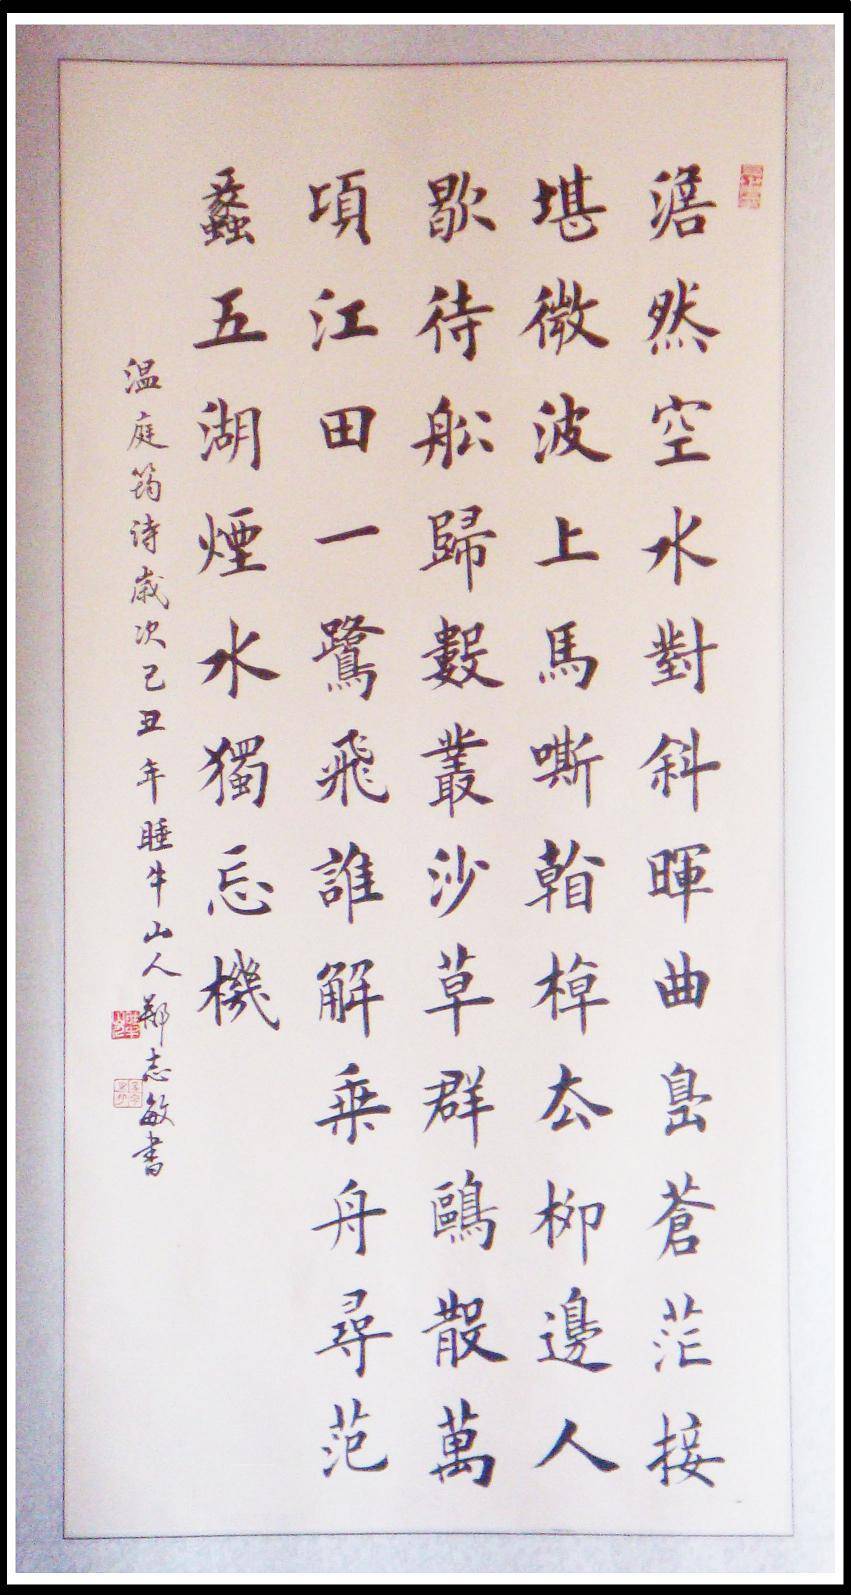 澹然空水對斜暉曲島蒼茫接
堪微波上馬嘶棹厺柳邊人
歇待舩歸數叢沙草群鷗散萬
項江田一鷺飛誰解乗舟尋范
蠡五湖煙水獨忘機
温庭筠詩歲次己丑年睡牛山人鄭志敏書